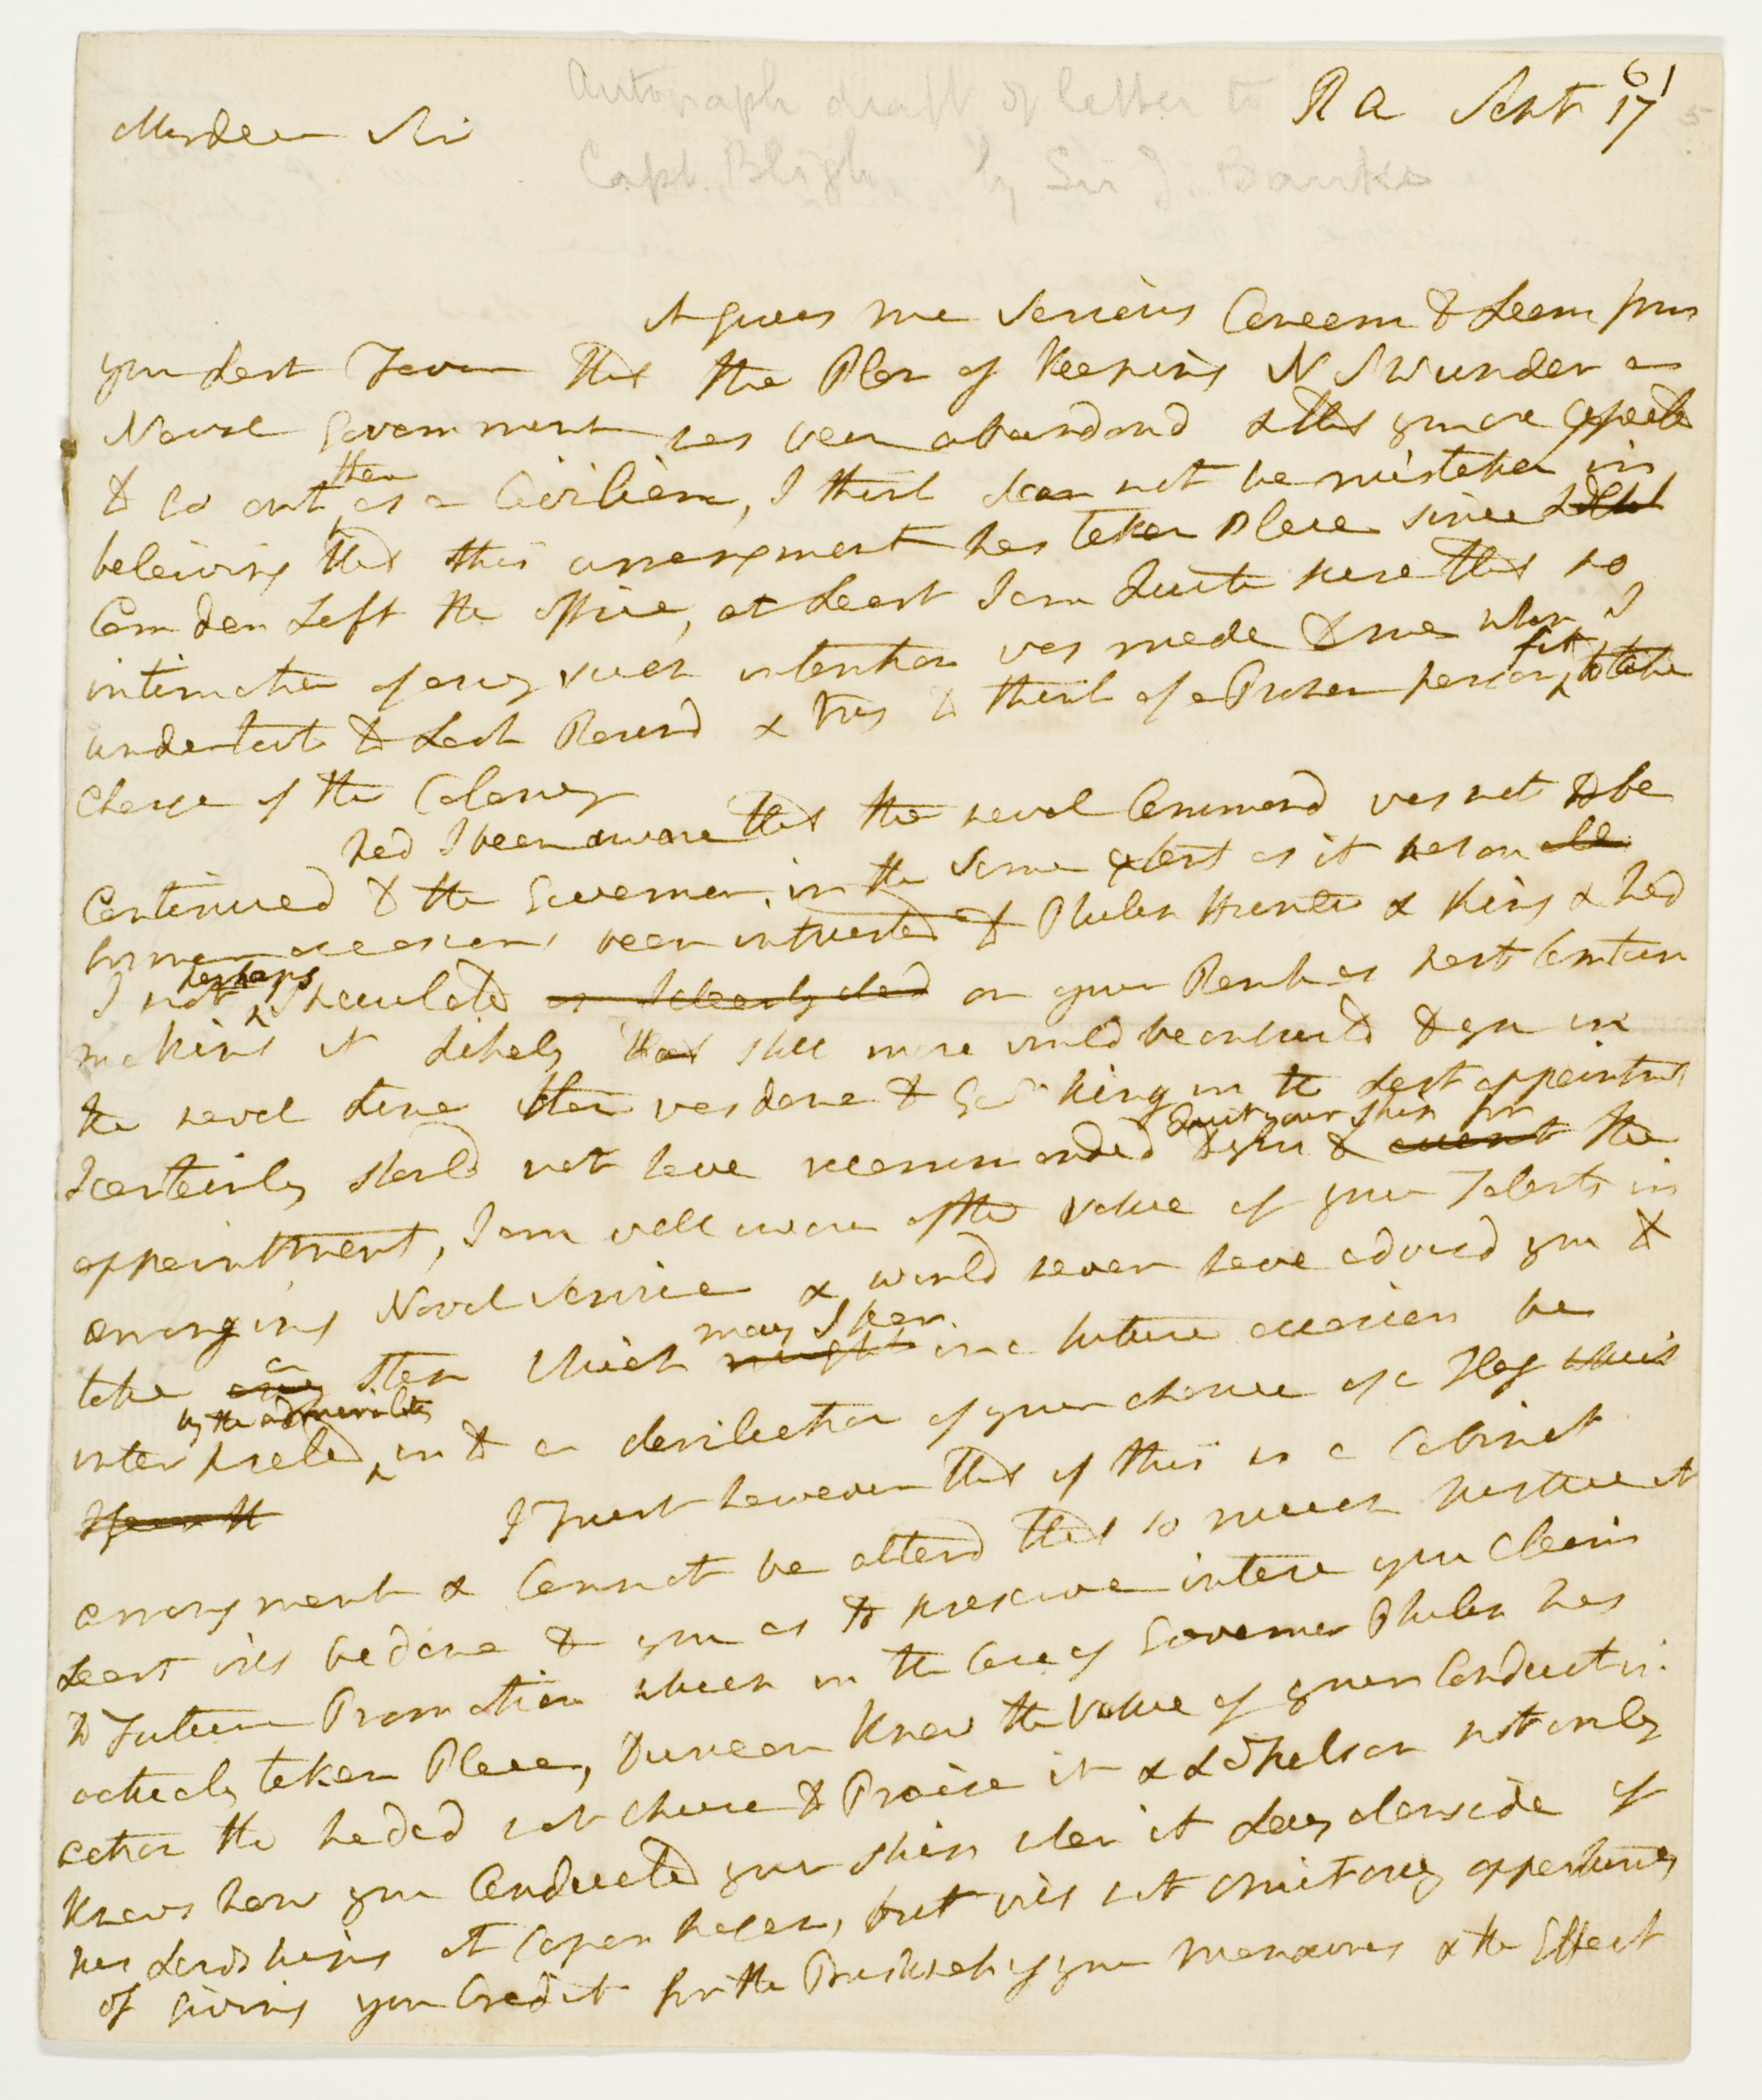 Autograph draft of letter to
Capt. Bligh by Sir J. Banks
R A Sept 17
My dear Sir
It gives me serious Concern to Learn from
your Last Favor that the Plan of Keeping N S W under a
Naval Government has been abandond & that you are
to go out then as a Civilian, I think I can not be mistaken in
beleiving that this arrangment has taken Place since Ld
Camden Left the office, at Least I am Quite sure that no
intimation of any such intention was made to me when I
undertook to Look Round & try to think of a Proper person fit to take
charge of the Colony
had I been aware that the naval Command was not to be
Continued to the Governor in the same extent as it has on all
former occasions been intrusted to Philip Hunter & King & had
I not perhaps speculated as I clearly did on your Rank as Post Captain
making it Likely that still more would be intrusted to you in
the naval Line than was done to Govr King in the Last appointment
I certainly should not have recommended to you to Quit your Ship for the
appointment, I am well aware of the value of your Talents in
arranging Naval service & would never have advisd you to
take any a step which might may I fear in a future occasion be
interpreted by the admiralty in to a dereliction of your chance of a Flag
I Trust however that if this is a Cabinet
arrangment & Cannot be alterd that so much justice at
Least will be done to you as to preserve intire your Claim
to Future Promotion which in the Case of Governor Philip has
actualy taken Place, Duncan knew the value of your Conduct in
action tho he did not chuse to Praise it & Ld Nelson not only
knows how you Conducted your ship when it Lay alongside of
his Lordships at Copenhagen, but will not omit any opportunity
of giving you Credit for the of your manœuvres & the Effect